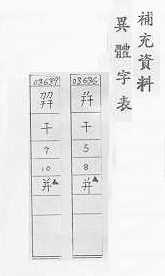 補充資料
異體字表
03636
干
5
8
并▲
03637
干
7
10
并▲